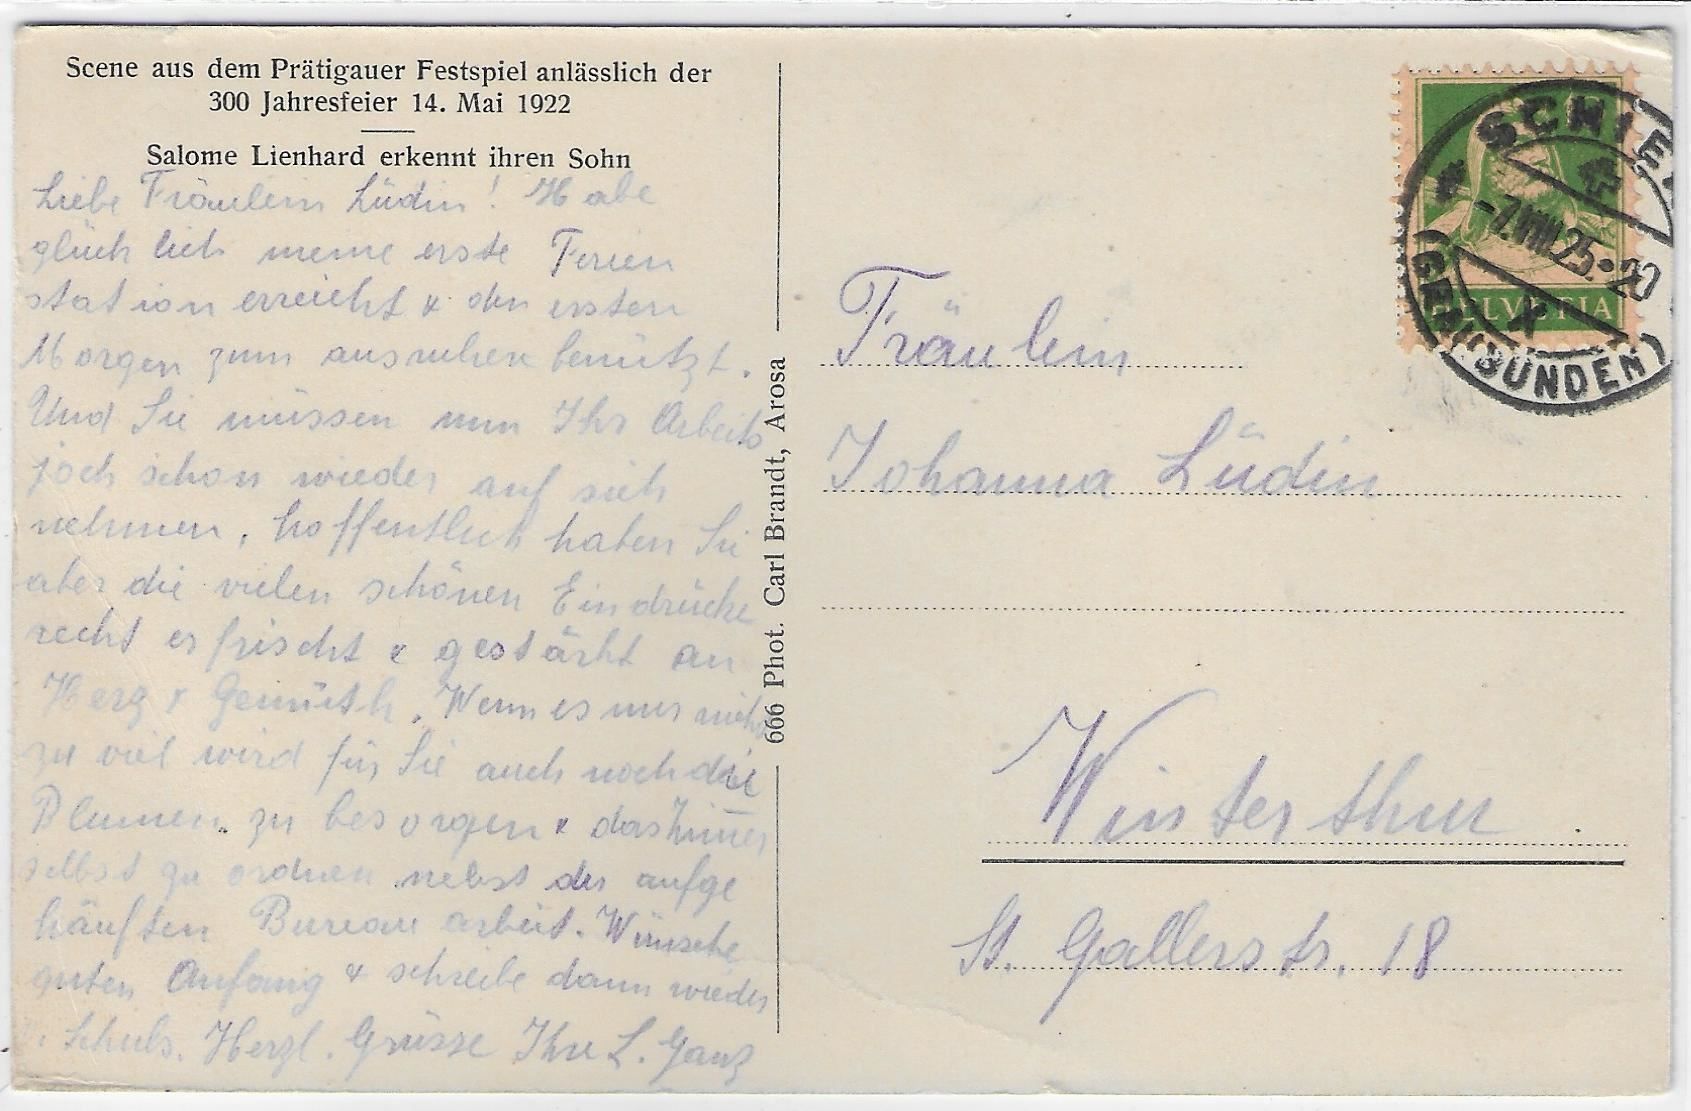 Scene aus dem Prätigauer Festspiel anlässlich der
300 Jahresfeier 14. Mai 1922
Salome Lienhard erkennt ihren Sohn
Liebe Fräulein Lüdin! Habe
glücklich meine erste Ferien
station erreicht & den ersten
Morgen zum ausruhen benützt.
Und Sie müssen nun Ihr Arbeits
joch schon wieder auf sich
nehmen, hoffentlich haben Sie
aber die vielen schönen Eindrücke
recht erfrischt & gestärkt an
Herz & Gemüth. Wenn es nur nicht
zu viel wird für Sie auch noch die
Blumen zu besorgen & das Zimmer
selbst zu ordnen nebst der aufge
häuften Bureau arbeit. Wünsche
guten Anfang & schreibe dann wieder
v. Schuls. Herzl. Grüsse Ihre L. Ganz
666 Phot. Carl Brandt, Arosa
Fräulein
Johanna Lüdin
Winterthur
St. Gallerstr. 18
HELVETIA
SCHIE
-7.VIII.25.-20
X
(GRAUBÜNDEN)